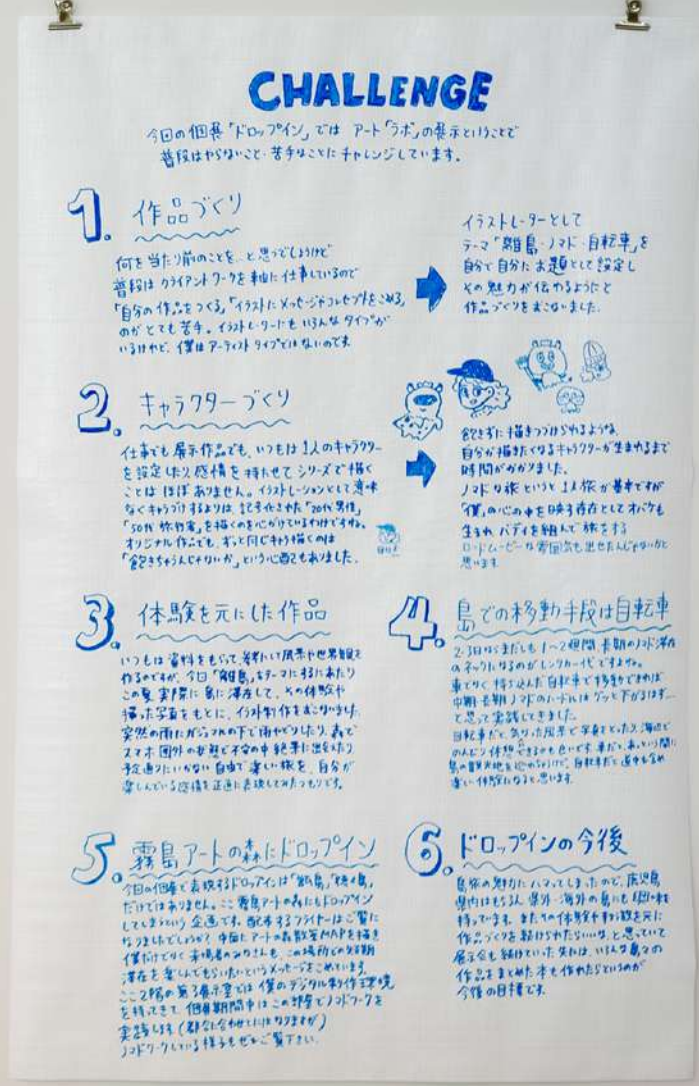 CHALLENGE
今回の個展「ドロップイン」では アート「ラボ」の展示ということで
普段はやらないこと・苦手なことにチャレンジしています。
1. 作品づくり
何を当たり前のことを…と思うでしょうけど
普段はクライアントワークを軸に仕事しているので
「自分の作品をつくる」「イラストにメッセージやコンセプトをこめる」
のがとても苦手。イラストレーターにもいろんなタイプが
いるけれど、僕はアーティストタイプではないのです
イラストレーターとして
テーマ「離島・ノマド・自転車」を
自分で自分にお題として設定し
その魅力が伝わるようにと
作品づくりをおこないました.
2. キャラクターづくり
仕事でも展示作品でも、いつもは1人のキャラクター
を設定したり感情を持たせてシリーズで描く
ことは ほぼありません。イラストレーションとして意味
なくキャラづけするよりは、記号化された「20代男性」
「50代 旅行客」を描くのを心がけているわけですね。
オリジナル作品でも、ずっと同じキャラ描くのは
「飽きちゃうんじゃないか」という心配もありました.
飽きずに描きつづけられるような、
自分が描きたくなるキャラクターが生まれるまで
時間がかかりました。
ノマドな旅というと1人旅が基本ですが
「僕」の心の中を映す存在としてオバケも
生まれ バディを組んで旅をする
ロードムービーな雰囲気も出せたんじゃないかと
思います
3. 体験を元にした作品
いつもは資料をもらって、参考にして風景や世界観を
作るのですが、今回「離島」をテーマにするにあたり
この夏 実際に島に滞在して、その体験や
撮った写真をもとに、イラスト制作をおこないました.
突然の雨にガジュマルの下で雨やどりしたり、森で
スマホ圏外の状態で不安の中 絶景に出会えたり
予定通りにいかない 自由で楽しい旅を、自分が
楽しんでいる感情を正直に表現してみたつもりです。
4. 島での移動手段は自転車
2-3日ならまだしも 1〜2週間 長期のノマド滞在
のネックになるのがレンタカー代ですよね。
車でなく 持ち込んだ自転車で移動できれば
中期・長期ノマドのハードルはグッと下がるはず…
と思って実践してきました。
自転車だと、気になった風景で写真をとったり、海辺で
のんびり休憩できるのも良いです。車だと、あっという間に
島の観光地を
自転車だと道中も含め
楽しい体験になると思います.
5. 霧島アートの森にドロップイン
今回の個展で表現するドロップインは「離島」
だけではありません。ここ霧島アートの森にもドロップイン
してしまうという企画です。配布するフライヤーはご覧に
なりましたでしょうか? 中面にアートの森散策MAPを描き
僕だけでなく 来場者のみなさんも、この場所での短期
滞在を楽しんでもらいたいというメッセージをこめています.
ここ2階の第3展示室では 僕のデジタル制作環境
を持ってきて、個展期間中はこの部屋でノマドワークを
実践します(都合に合わせてにはなりますが)
ノマドワークしている様子もぜひご覧下さい.
6. ドロップインの今後
島旅の魅力にハマってしまったので、鹿児島
県内はもちろん 県外・海外の島にも興味を
持っています. またその体験や
を元に
作品づくりを続けられたらいいな、と思っていて
展示会も続けていった先には、いろんな島々の
作品をまとめた本も作れたらというのが
今後の目標です.